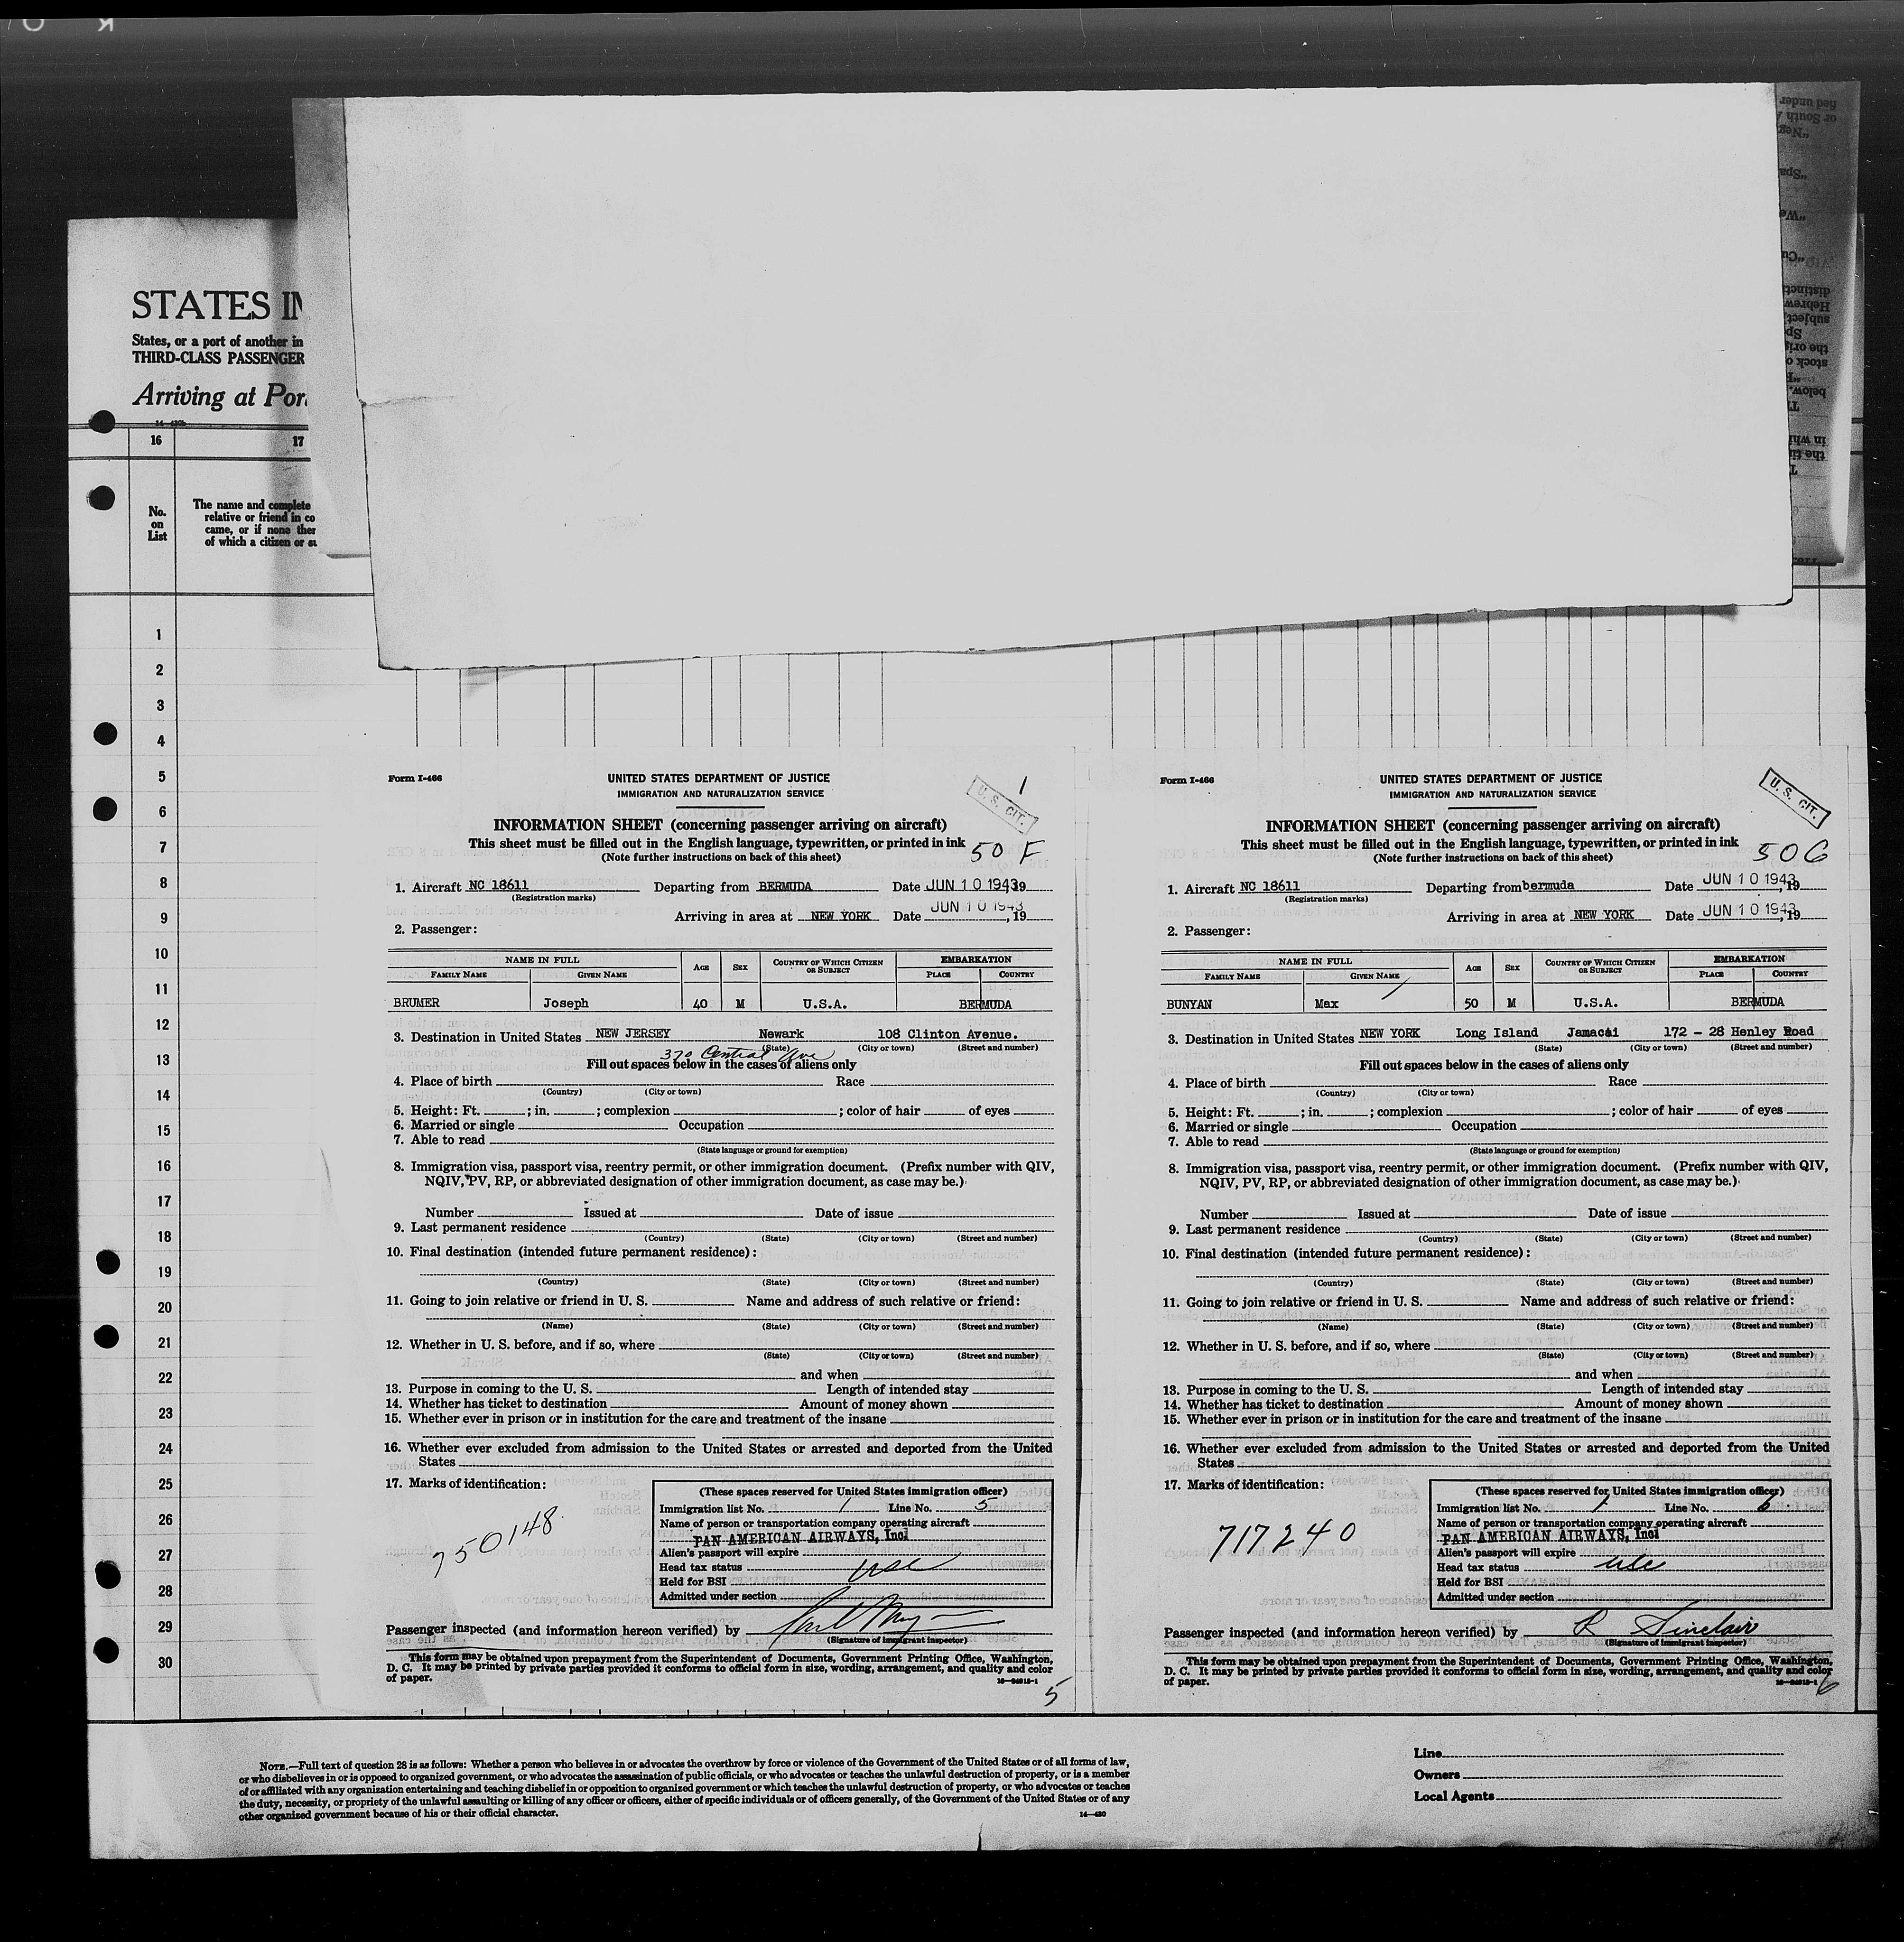 STATES IN
States, or a port of another in
THIRD-CLASS PASSENGER
Arriving at Por
16 17
No.
on
List
The name and complete
relative or friend in co
came, or if none ther
of which a citizen or su
1
2
3
4
5
6
7
8
9
10
11
12
13
14
15
16
17
18
19
20
21
22
23
24
25
26
27
28
29
30
Form I-466
UNITED STATES DEPARTMENT OF JUSTICE
IMMIGRATION AND NATURALIZATION SERVICE
1
U. S. CIT.
INFORMATION SHEET (concerning passenger arriving on aircraft)
This sheet must be filled out in the English language, typewritten, or printed in ink
(Note further instructions on back of this sheet)
50 F
1. Aircraft NC 18611 Departing from BERMUDA Date JUN 10 1943, 19
(Registration marks)
Arriving in area at NEW YORK Date JUN 10 1943, 19
2. Passenger:
NAME IN FULL AGE SEX COUNTRY OF WHICH CITIZEN OR SUBJECT EMBARKATION
FAMILY NAME GIVEN NAME PLACE COUNTRY
BRUMER Joseph 40 M U.S.A. BERMUDA
3. Destination in United States NEW JERSEY Newark 108 Clinton Avenue.
(State) (City or town) (Street and number)
370 Central Ave
Fill out spaces below in the cases of aliens only
4. Place of birth Race
(Country) (City or town)
5. Height: Ft. ; in. ; complexion ; color of hair of eyes
6. Married or single Occupation
7. Able to read
(State language or ground for exemption)
8. Immigration visa, passport visa, reentry permit, or other immigration document. (Prefix number with QIV,
NQIV, PV, RP, or abbreviated designation of other immigration document, as case may be.)
Number Issued at Date of issue
9. Last permanent residence
(Country) (State) (City or town) (Street and number)
10. Final destination (intended future permanent residence):
(Country) (State) (City or town) (Street and number)
11. Going to join relative or friend in U. S. Name and address of such relative or friend:
(Name) (State) (City or town) (Street and number)
12. Whether in U. S. before, and if so, where
(State) (City or town) (Street and number)
and when
13. Purpose in coming to the U. S. Length of intended stay
14. Whether has ticket to destination Amount of money shown
15. Whether ever in prison or in institution for the care and treatment of the insane
16. Whether ever excluded from admission to the United States or arrested and deported from the United
States
17. Marks of identification:
750148
(These spaces reserved for United States immigration officer)
Immigration list No. 1 Line No. 5
Name of person or transportation company operating aircraft
PAN AMERICAN AIRWAYS, Inc
Alien's passport will expire
Head tax status usc
Held for BSI
Admitted under section
Passenger inspected (and information hereon verified) by
(Signature of immigrant inspector)
This form may be obtained upon prepayment from the Superintendent of Documents, Government Printing Office, Washington,
D. C. It may be printed by private parties provided it conforms to official form in size, wording, arrangement, and quality and color
of paper.
5
Form I-466
UNITED STATES DEPARTMENT OF JUSTICE
IMMIGRATION AND NATURALIZATION SERVICE
U. S. CIT.
INFORMATION SHEET (concerning passenger arriving on aircraft)
This sheet must be filled out in the English language, typewritten, or printed in ink
(Note further instructions on back of this sheet)
50 G
1. Aircraft NC 18611 Departing from bermuda Date JUN 10 1943, 19
(Registration marks)
Arriving in area at NEW YORK Date JUN 10 1943, 19
2. Passenger:
NAME IN FULL AGE SEX COUNTRY OF WHICH CITIZEN OR SUBJECT EMBARKATION
FAMILY NAME GIVEN NAME PLACE COUNTRY
BUNYAN Max 50 M U.S.A. BERMUDA
3. Destination in United States NEW YORK Long Island Jamacai 172 - 28 Henley Road
(State) (City or town) (Street and number)
Fill out spaces below in the cases of aliens only
4. Place of birth Race
(Country) (City or town)
5. Height: Ft. ; in. ; complexion ; color of hair of eyes
6. Married or single Occupation
7. Able to read
(State language or ground for exemption)
8. Immigration visa, passport visa, reentry permit, or other immigration document. (Prefix number with QIV,
NQIV, PV, RP, or abbreviated designation of other immigration document, as case may be.)
Number Issued at Date of issue
9. Last permanent residence
(Country) (State) (City or town) (Street and number)
10. Final destination (intended future permanent residence):
(Country) (State) (City or town) (Street and number)
11. Going to join relative or friend in U. S. Name and address of such relative or friend:
(Name) (State) (City or town) (Street and number)
12. Whether in U. S. before, and if so, where
(State) (City or town) (Street and number)
and when
13. Purpose in coming to the U. S. Length of intended stay
14. Whether has ticket to destination Amount of money shown
15. Whether ever in prison or in institution for the care and treatment of the insane
16. Whether ever excluded from admission to the United States or arrested and deported from the United
States
17. Marks of identification:
717240
(These spaces reserved for United States immigration officer)
Immigration list No. 1 Line No. 6
Name of person or transportation company operating aircraft
PAN AMERICAN AIRWAYS, Inc
Alien's passport will expire
Head tax status usc
Held for BSI
Admitted under section
Passenger inspected (and information hereon verified) by R Sinclair
(Signature of immigrant inspector)
This form may be obtained upon prepayment from the Superintendent of Documents, Government Printing Office, Washington,
D. C. It may be printed by private parties provided it conforms to official form in size, wording, arrangement, and quality and color
of paper.
6
NOTE.—Full text of question 28 is as follows: Whether a person who believes in or advocates the overthrow by force or violence of the Government of the United States or of all forms of law,
or who disbelieves in or is opposed to organized government, or who advocates the assassination of public officials, or who advocates or teaches the unlawful destruction of property, or is a member
of or affiliated with any organization entertaining and teaching disbelief in or opposition to organized government or which teaches the unlawful destruction of property, or who advocates or teaches
the duty, necessity, or propriety of the unlawful assaulting or killing of any officer or officers, either of specific individuals or of officers generally, of the Government of the United States or of any
other organized government because of his or their official character.
14—430
Line
Owners
Local Agents